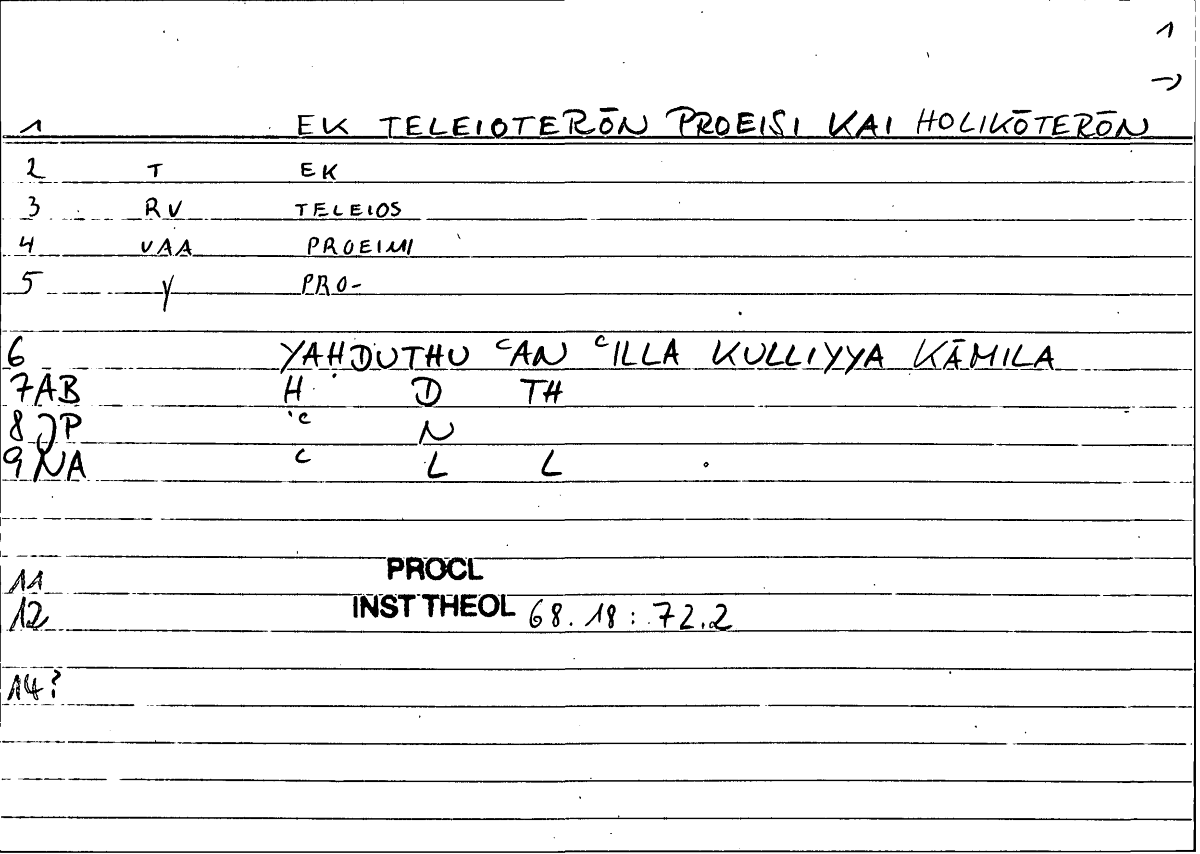 1
→
1 EK TELEIOTERŌN PROEISI KAI HOLIKŌTERŌN
2 T EK
3 RV TELEIOS
4 VAA PROEIMI
5 Y PRO-
6 YAḤDUTHU ʿAN ʿILLA KULLIYYA KĀMILA
7 AB Ḥ D TH
8 JP ʿ N
9 NA ʿ L L
11 PROCL
12 INST THEOL 68.18 : 72.2
14?